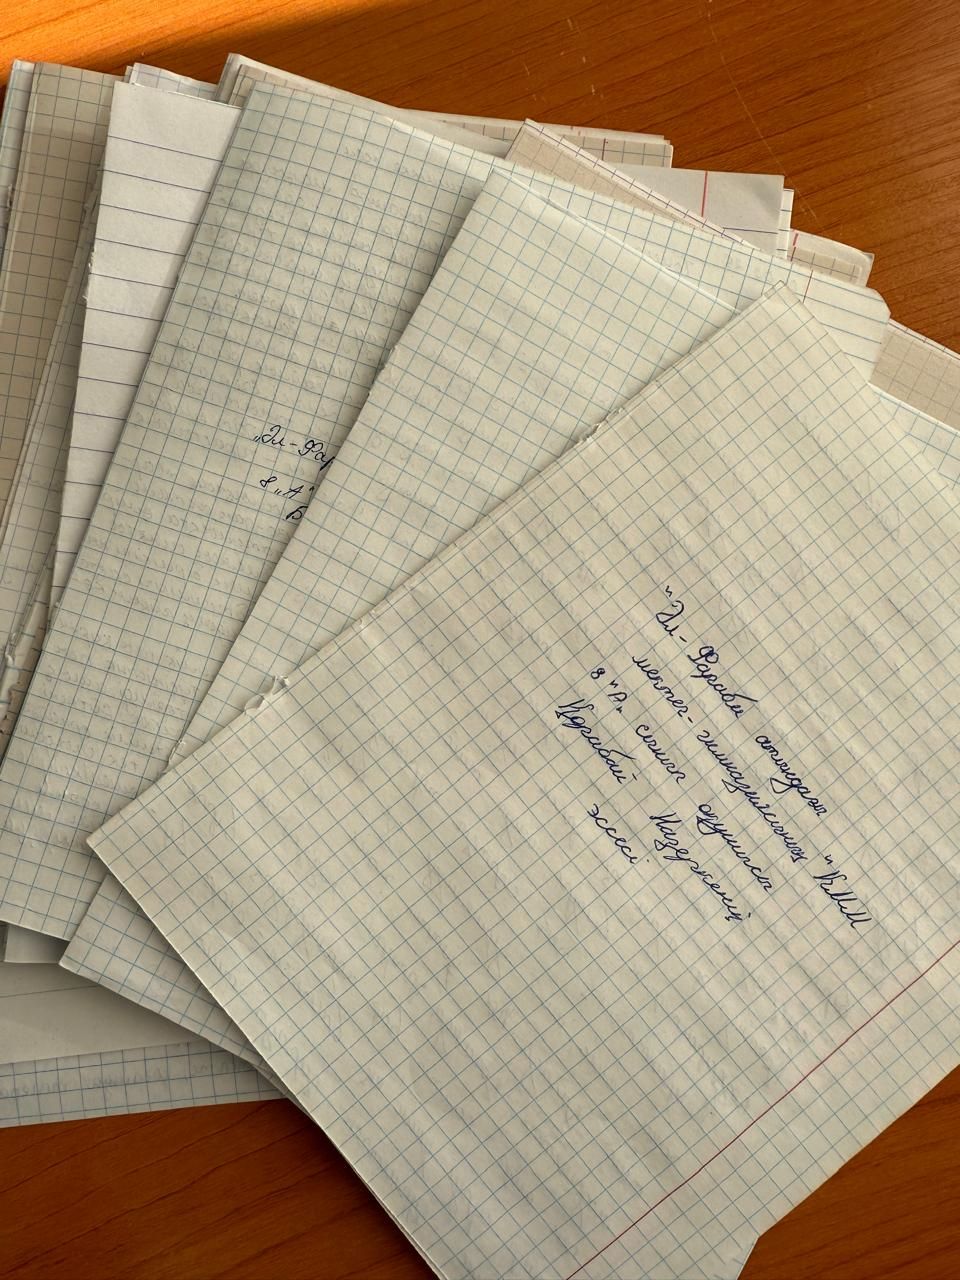 "Әл-Фараби атындағы
мектеп-гимназиясының" КММ
8 "А" сынып оқушысы
Қарабай Назеркенің
эссесі
„Әл-Фар
8 „А"
Б